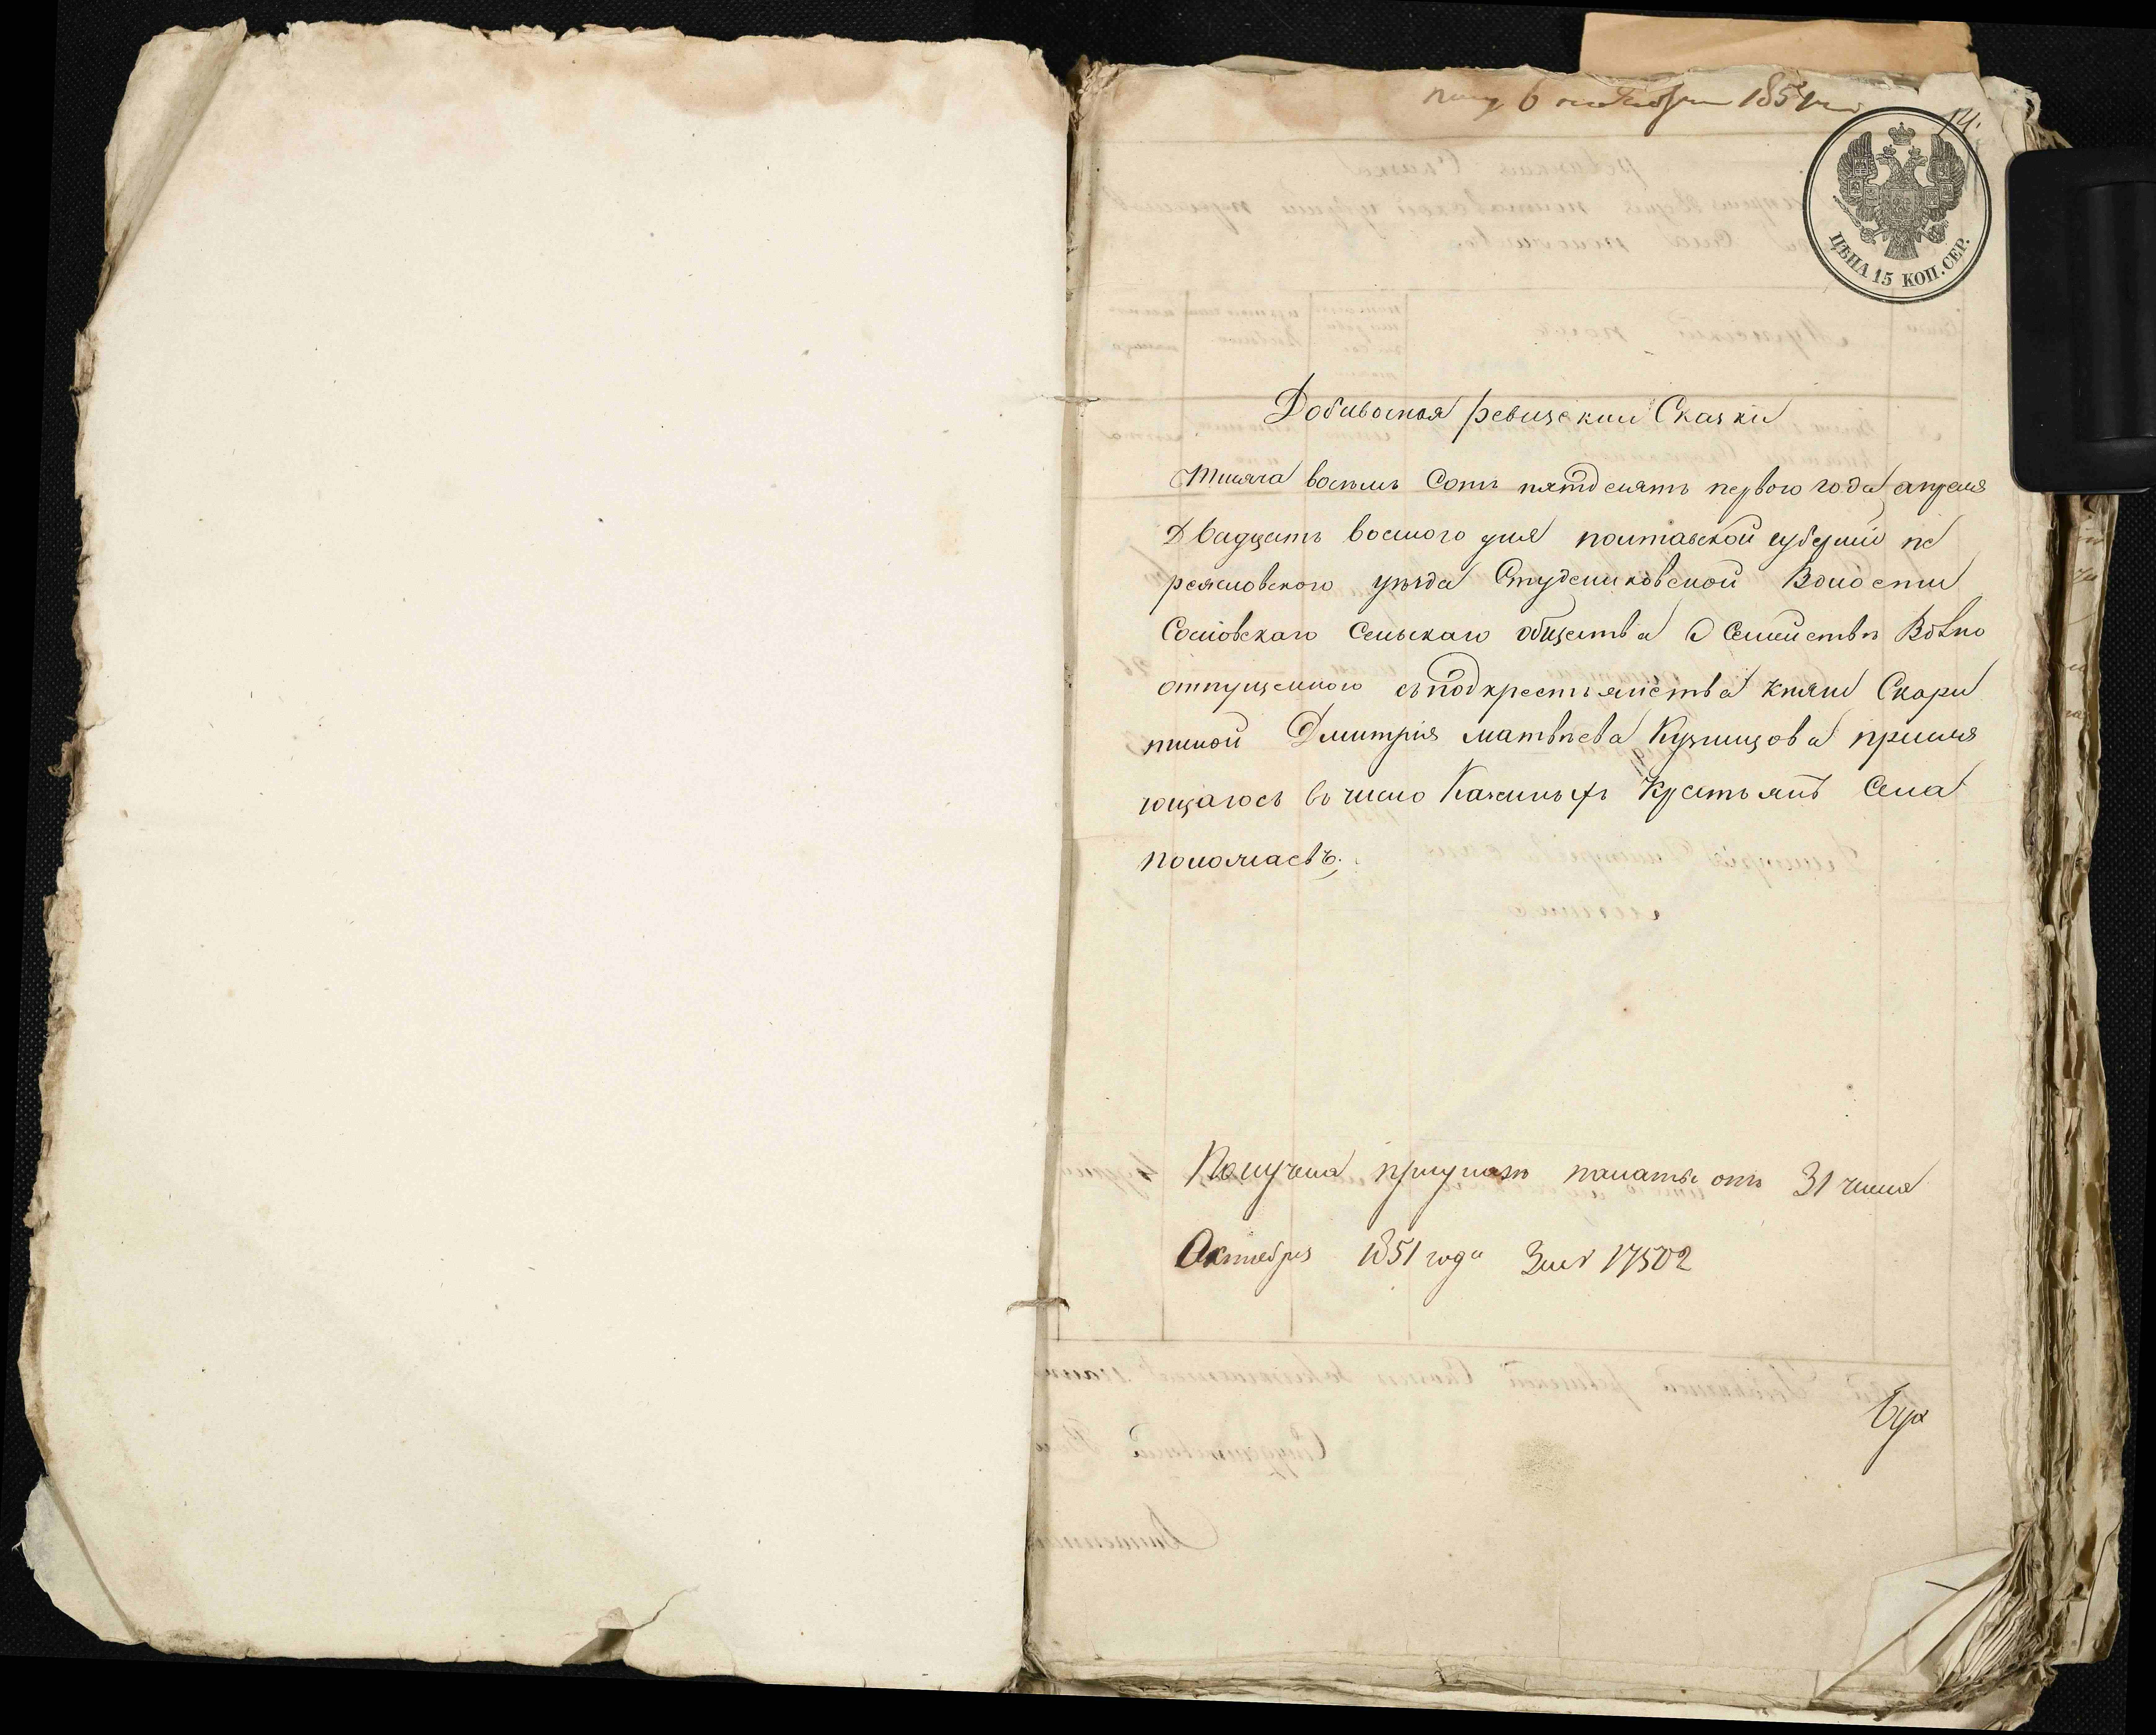 6 октября 1851 го
14.
ЦѢНА 15 КОП. СЕР.
Добавочная ревизския Сказки
Тисяча восемь Сотъ пятдесятъ первого года апреля
Двадцать восмого дня полтавской губернии пе
реяславского уѣзда Студениковской Волости
Сосновскаго Сельскаго общества О Семействѣ Волно
отпущенного съ подкрестьянства княгини Скоро
Дмитрія матвѣева Кузнецова причисля
ющагось въ число Казеныхъ Крестьянъ Села
Получена приуказѣ палаты отъ 31 числа
Октебря 1851 года За № 17502